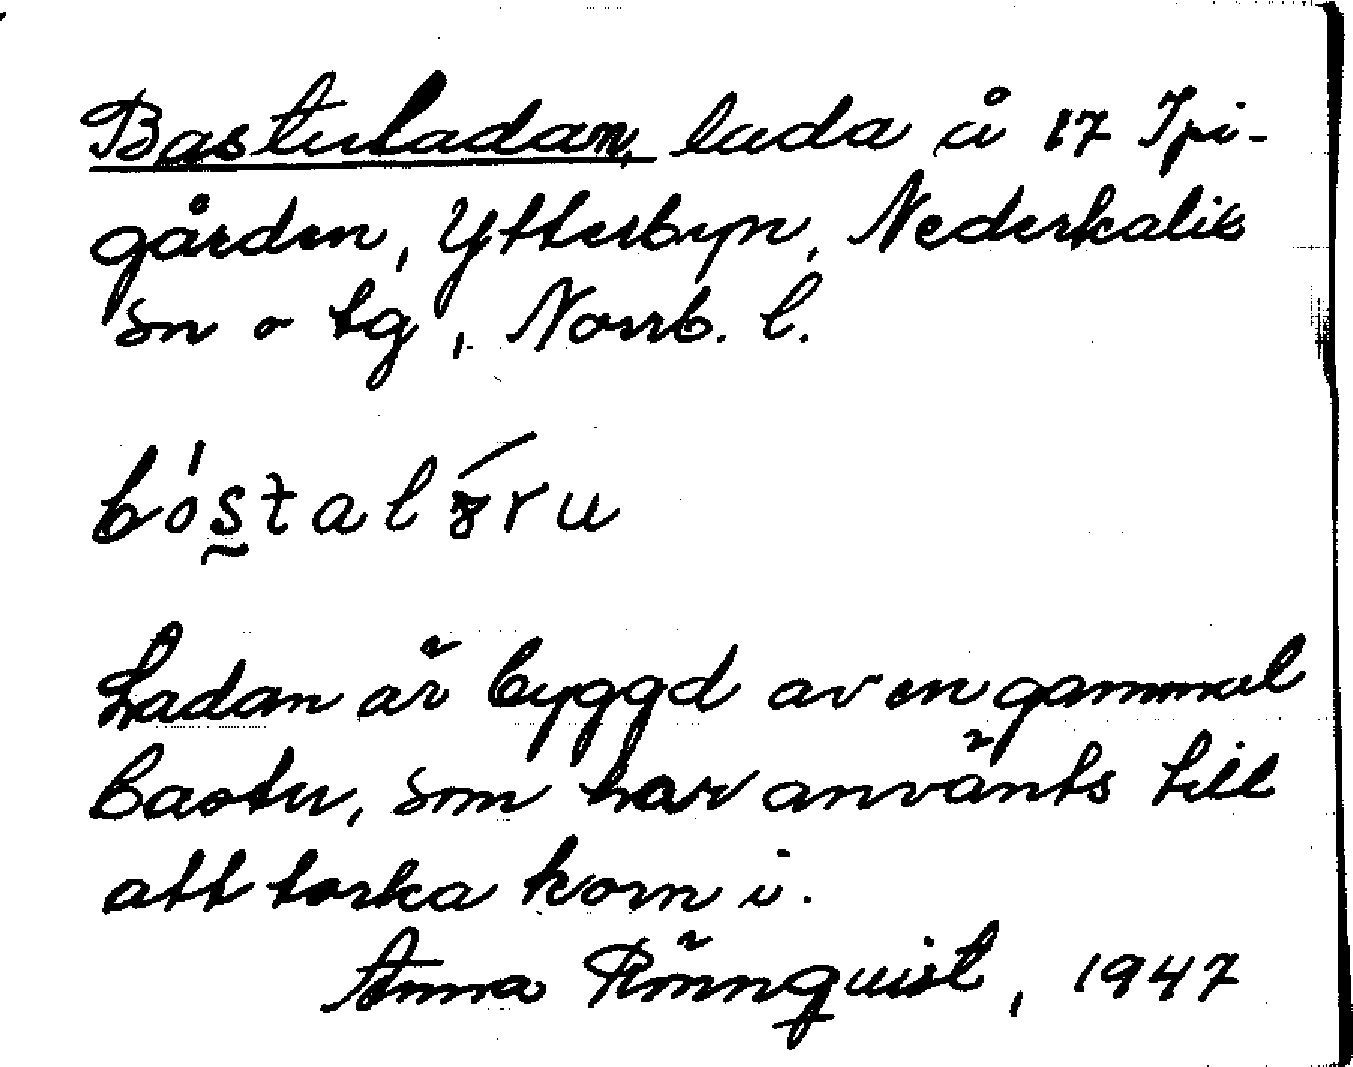 Bastuladan, lada å 17 Ipi-
gården, Ytterbyn, Nederkalix
sn o tg, Norrb. l.
Ladan är byggd av en gammal
bastu, som har använts till
att torka korn i.
Anna Rönnquist, 1947